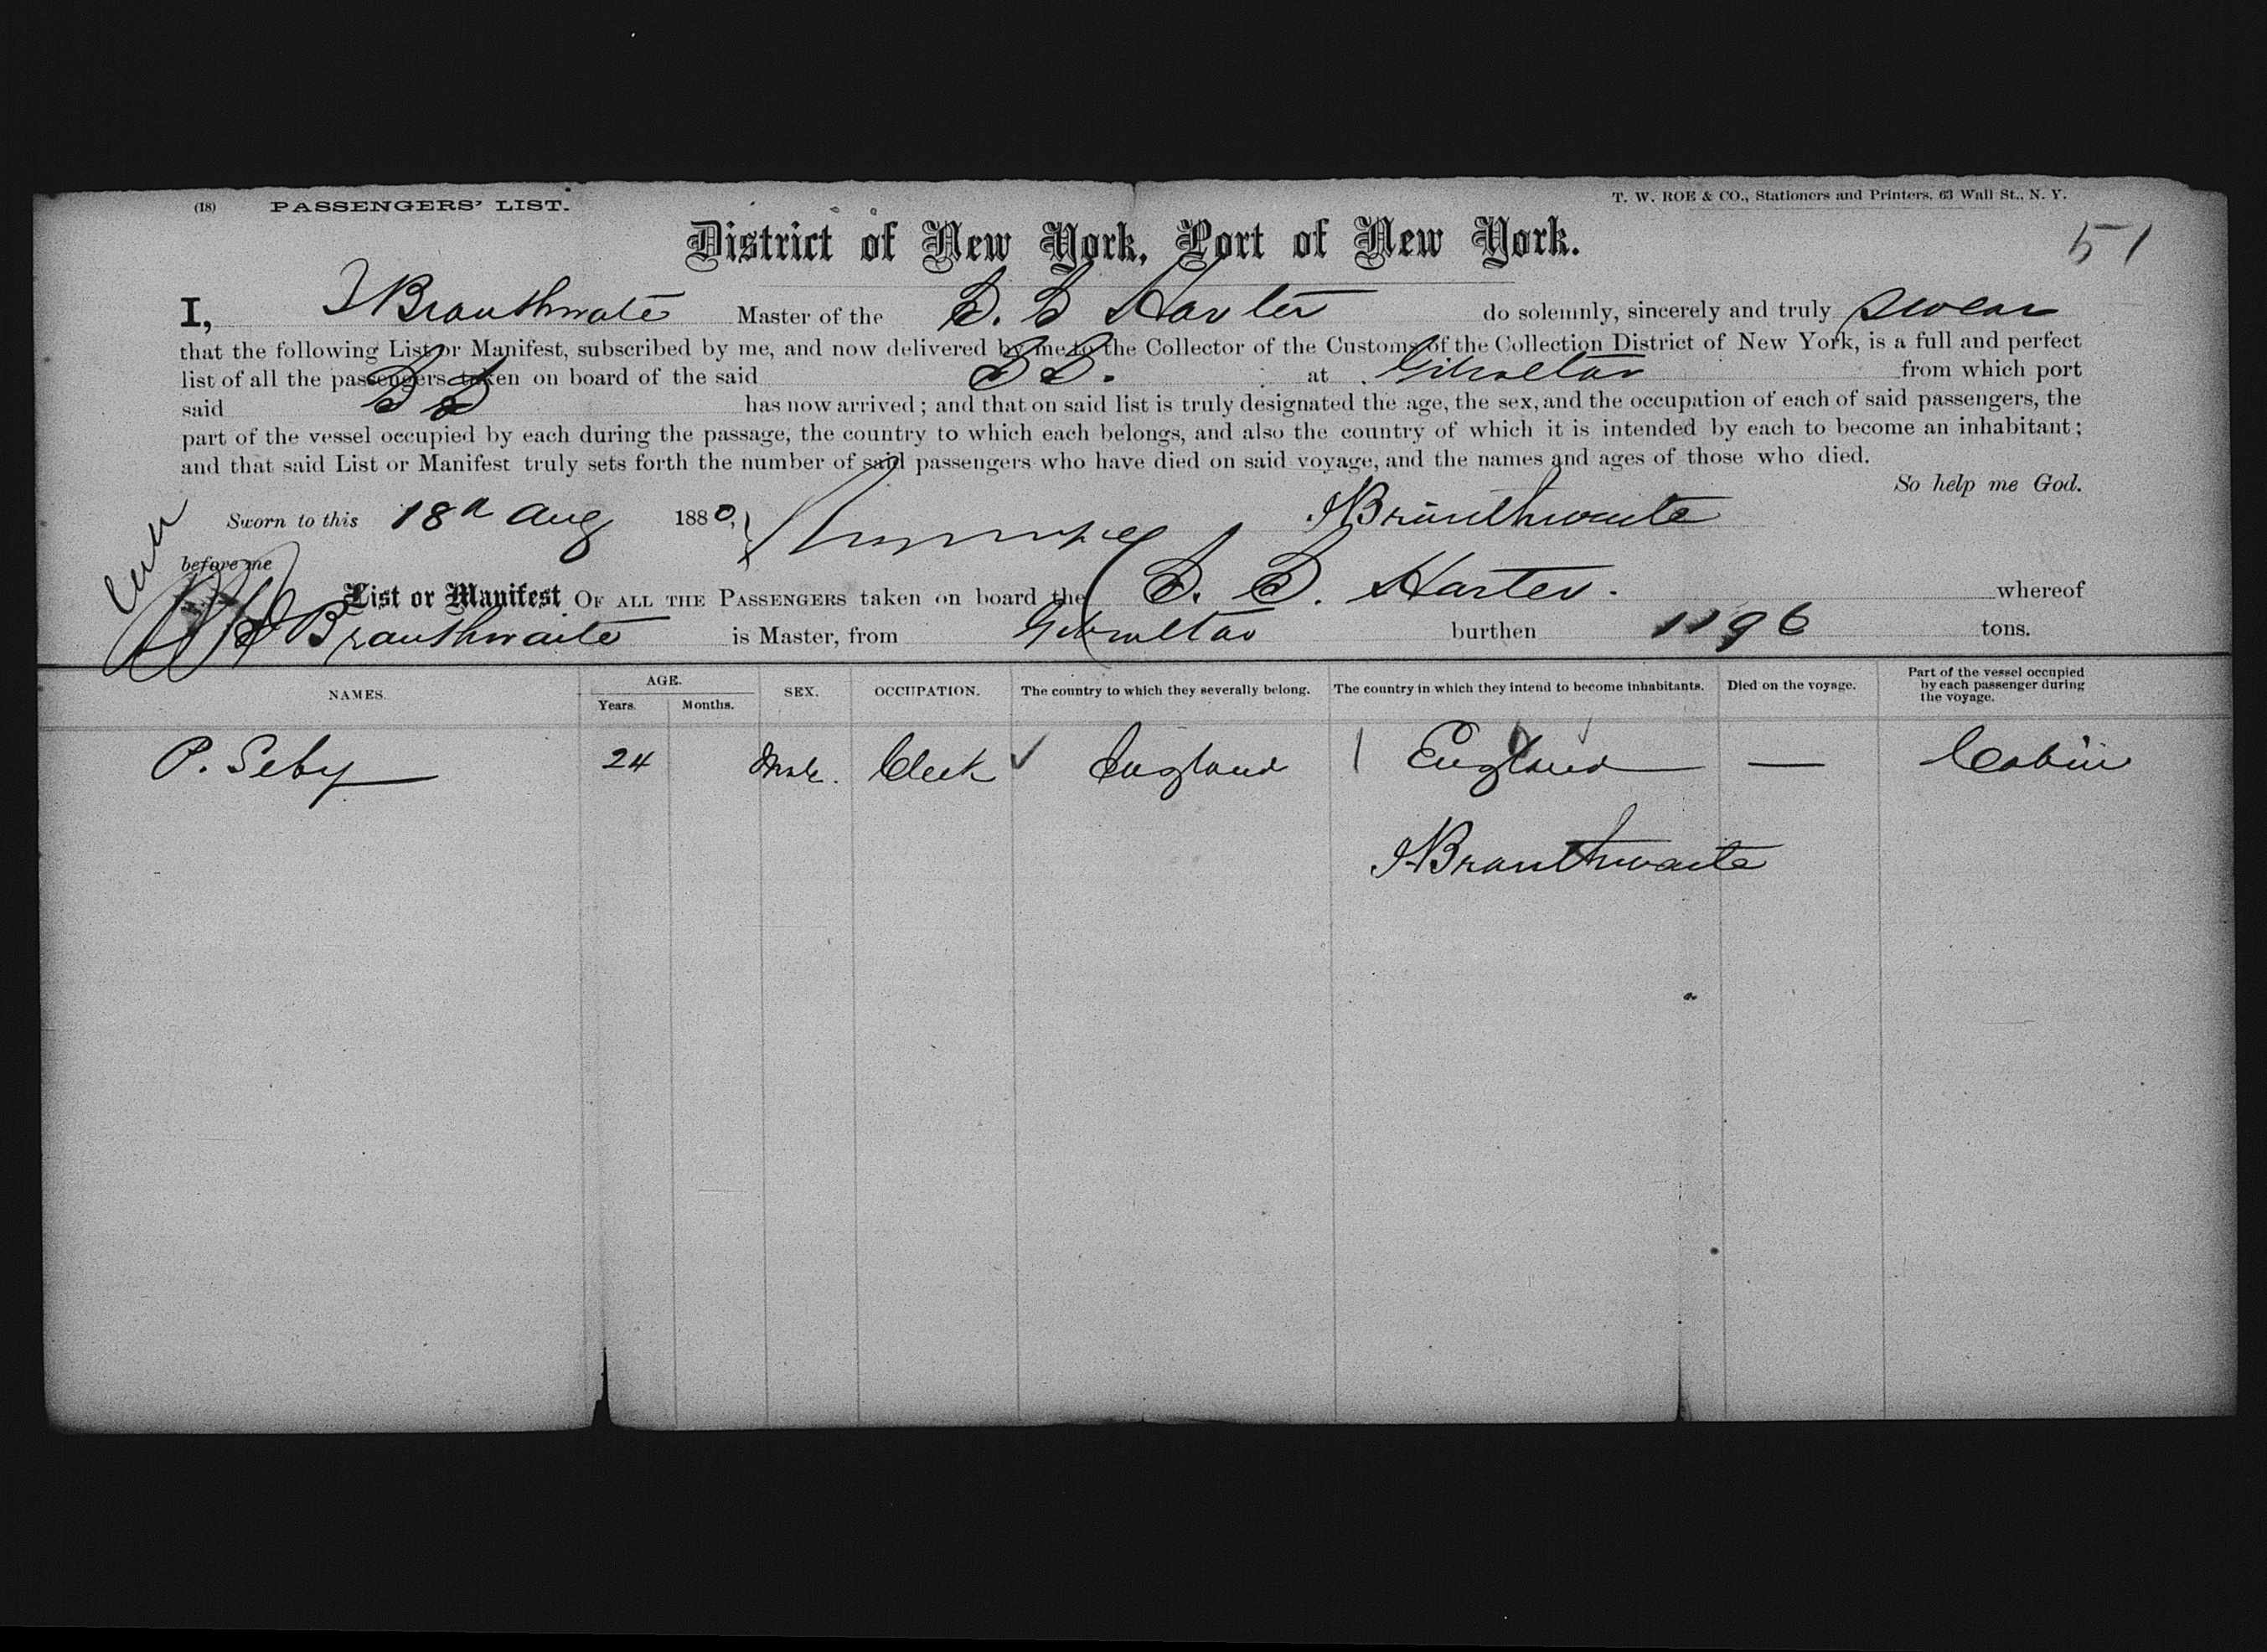 (18) PASSENGERS' LIST.
T. W. ROE & CO., Stationers and Printers, 63 Wall St., N. Y.
District of New York, Port of New York.
51
I, J Branthwaite Master of the S. S Harter do solemnly, sincerely and truly swear
that the following List or Manifest, subscribed by me, and now delivered by me to the Collector of the Customs of the Collection District of New York, is a full and perfect
list of all the passengers taken on board of the said SS. at Gibraltar from which port
said SS has now arrived; and that on said list is truly designated the age, the sex, and the occupation of each of said passengers, the
part of the vessel occupied by each during the passage, the country to which each belongs, and also the country of which it is intended by each to become an inhabitant;
and that said List or Manifest truly sets forth the number of said passengers who have died on said voyage, and the names and ages of those who died.
So help me God.
Sworn to this 18th Aug 1880, JBranthwaite
before me
List or Manifest OF ALL THE PASSENGERS taken on board the S. S. Harter. whereof
Branthwaite is Master, from Gibraltar burthen 1196 tons.
NAMES. AGE. Years. Months. SEX. OCCUPATION. The country to which they severally belong. The country in which they intend to become inhabitants. Died on the voyage. Part of the vessel occupied by each passenger during the voyage.
P. Seby 24 Male. Clerk England England — Cabin
JBranthwaite